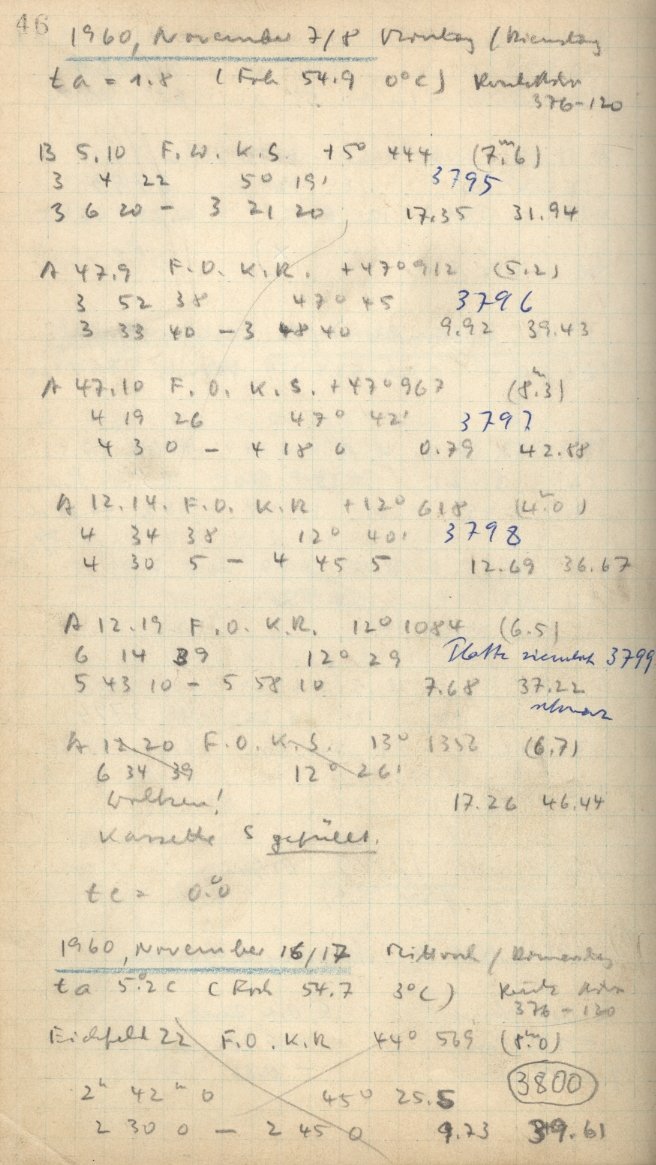 46
1960, November 7/8 Montag / Dienstag
ta = 1.8 (Fok 54.9 0°C)
376-120
B 5.10 F.W. K.S. +5° 444 (7.ᵐ6)
3 4 22 5° 19' 3795
3 6 20 - 3 21 20 17.35 31.94
A 47.9 F.O. K.R. +47° 912 (5.2)
3 52 38 47° 45 3796
3 33 40 - 3 48 40 9.92 39.43
A 47.10 F.O. K.S. +47° 967 (8.ᵐ3)
4 19 26 47° 42' 3797
4 3 0 - 4 18 0 0.79 42.88
A 12.14. F.O. K.R +12° 618 (4.ᵐ0)
4 34 38 12° 40' 3798
4 30 5 - 4 45 5 12.69 36.67
A 12.19 F.O. K.R. 12° 1084 (6.5)
6 14 39 12° 29 Platte ziemlich 3799
5 43 10 - 5 58 10 7.68 37.22
schwarz
A 12.20 F.O. K.S. 13° 1352 (6.7)
6 34 39 12° 26'
Wolken! 17.26 46.44
Kassette 5 gefüllt.
te = 0.°0
1960, November 16/17 Mittwoch / Donnerstag
ta 5.°2 C (Fok 54.7 3°C)
376 - 130
Eichfeld 22 F.O. K.R 44° 569 (8.ᵐ0)
3800
2ʰ 42ᵐ 0 45° 25.5
2 30 0 - 2 45 0 9.73 39.61